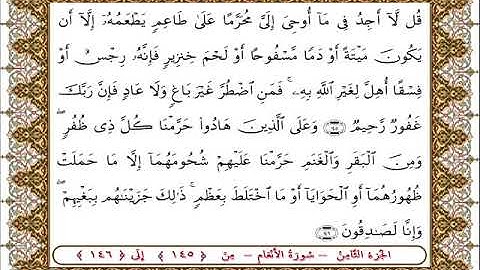 قُل لَّآ أَجِدُ فِى مَآ أُوحِىَ إِلَىَّ مُحَرَّمًا عَلَىٰ طَاعِمٍ يَطْعَمُهُۥٓ إِلَّآ أَن
يَكُونَ مَيْتَةً أَوْ دَمًا مَّسْفُوحًا أَوْ لَحْمَ خِنزِيرٍ فَإِنَّهُۥ رِجْسٌ أَوْ
فِسْقًا أُهِلَّ لِغَيْرِ ٱللَّهِ بِهِۦ ۚ فَمَنِ ٱضْطُرَّ غَيْرَ بَاغٍ وَلَا عَادٍ فَإِنَّ رَبَّكَ
غَفُورٌ رَّحِيمٌ ﴿١٤٥﴾ وَعَلَى ٱلَّذِينَ هَادُوا۟ حَرَّمْنَا كُلَّ ذِى ظُفُرٍ ۖ
وَمِنَ ٱلْبَقَرِ وَٱلْغَنَمِ حَرَّمْنَا عَلَيْهِمْ شُحُومَهُمَآ إِلَّا مَا حَمَلَتْ
ظُهُورُهُمَآ أَوِ ٱلْحَوَايَآ أَوْ مَا ٱخْتَلَطَ بِعَظْمٍ ۚ ذَٰلِكَ جَزَيْنَـٰهُم بِبَغْيِهِمْ ۖ
وَإِنَّا لَصَـٰدِقُونَ ﴿١٤٦﴾
الجزء الثامن - سورة الأنعام - من ﴿١٤٥﴾ إلى ﴿١٤٦﴾